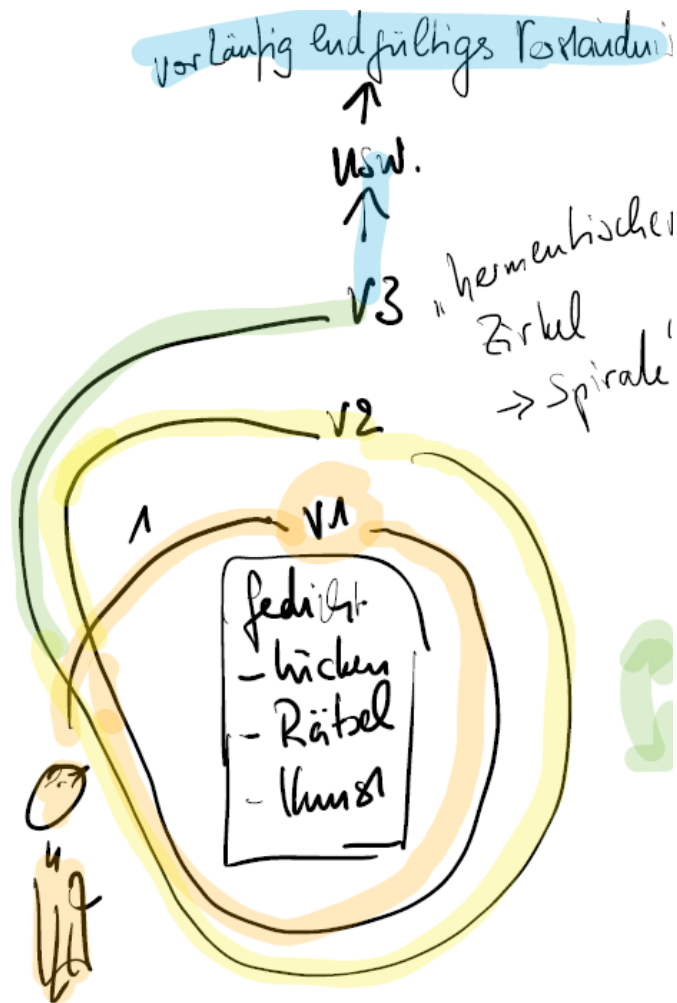 vorläufig endgültigs Verständnis
usw.
V3
"hermentischer
Zirkel
→ Spirale"
V2
1
V1
Gedicht
- Lücken
- Rätsel
- Kunst